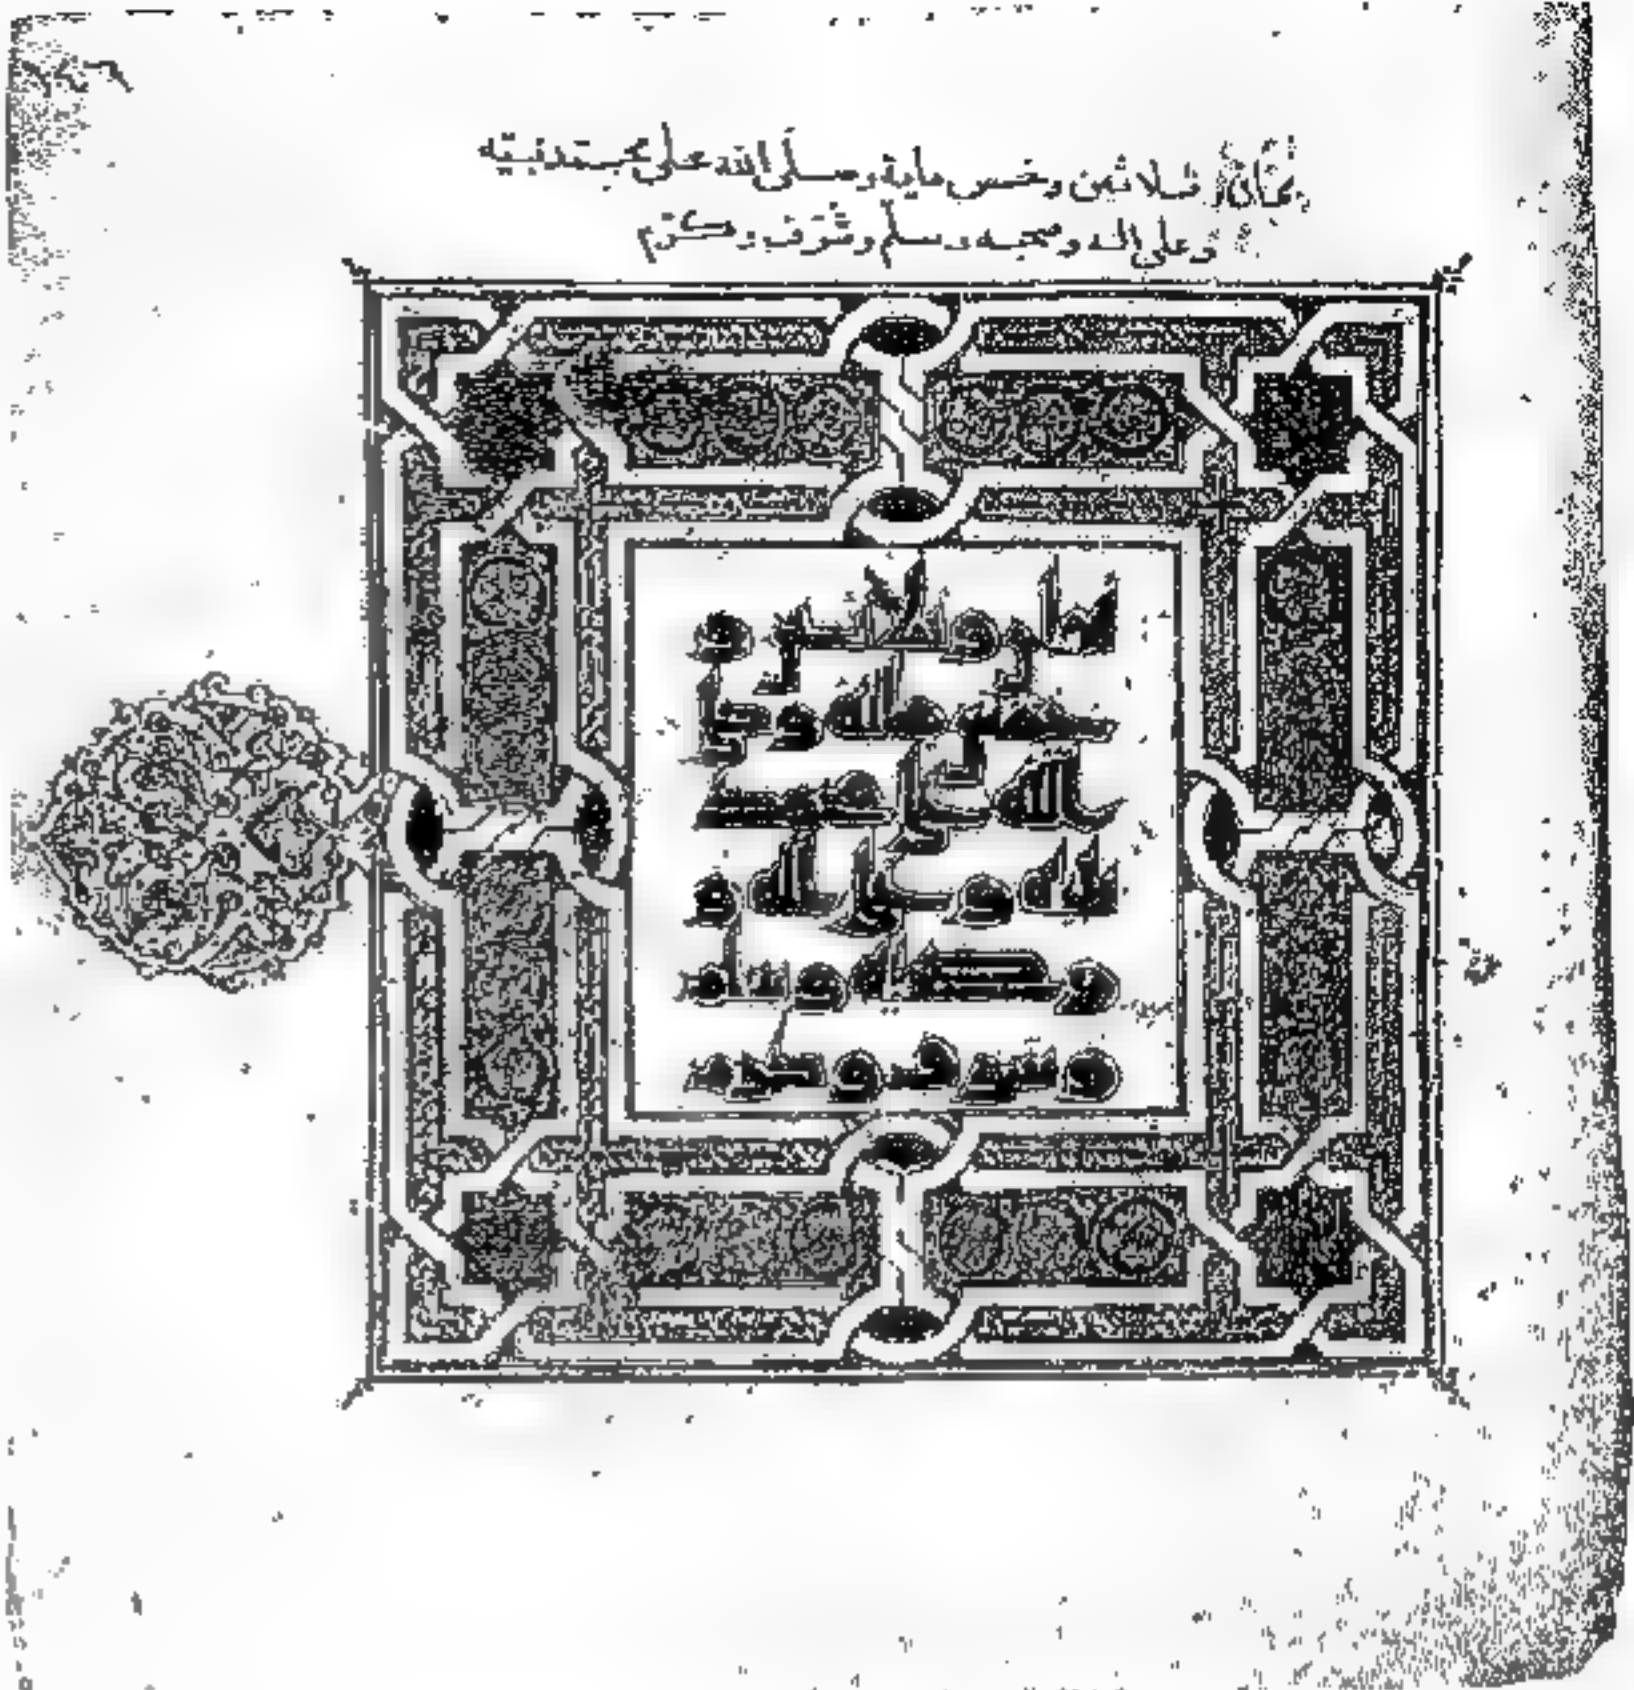 ثمان وثلاثين وخمس ماية وصلى الله على محمد نبيه
وعلى اله وصحبه وسلم وشرف وكرم
ثمان وثلاثين و
خمس ماية وصلى
الله على محمد
نبيه وعلى اله و
صحبه وسلم
وشرف وكرم